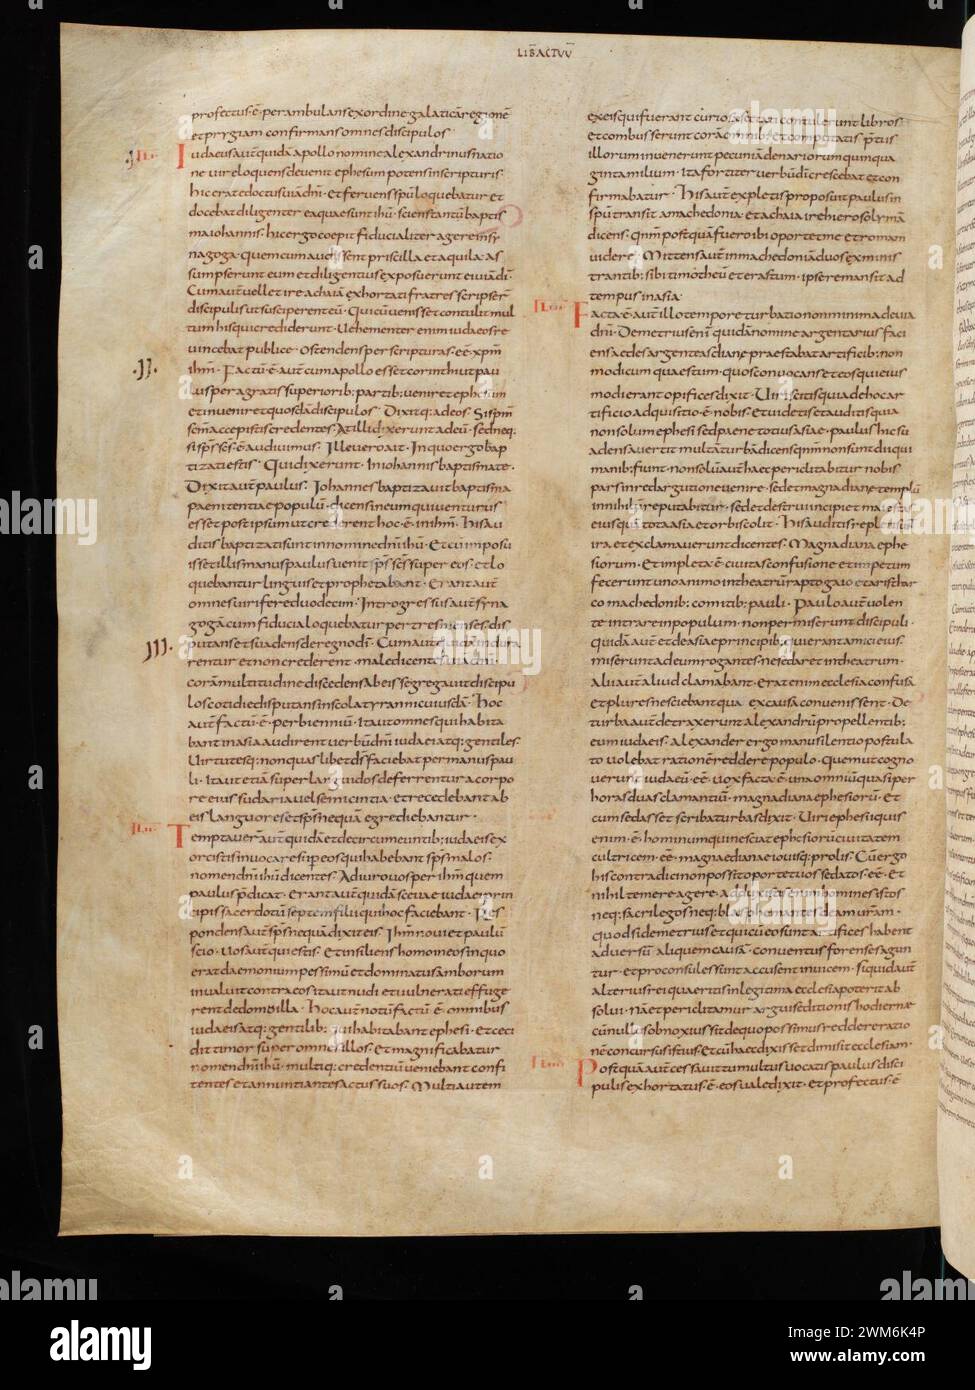 LIB ACTUU
profectus·ē·perambulans ex ordine galaticā regionē
et prygiam confirmans omnes discipulos
Iudaeus aut quidā apollo nomine alexandrinus natio
ne vir eloquens devenit ephesum potens in scripturis·
hic erat doctus viā dnī· et fervens spū loquebatur et
docebat diligenter ea quae sunt ihū· sciens tantū baptis
ma iohannis· hic ergo coepit fiducialiter agere in sy
nagoga· quem cum audissent priscilla et aquila· as
sumpserunt eum et diligentius exposuerunt ei viā dī·
Cum aut vellet ire achaiā exhortati fratres scripser
discipulis ut susciperent eū· Qui cū venisset contulit mul
tum his qui crediderunt· Vehementer enim iudaeos re
vincebat publice· ostendens per scripturas· eē xpm
ihm· Factū·ē·aut cum apollo esset corinthi ut pau
lus peragratis superiorib; partib; veniret ephesum
et inveniret quosdā discipulos· Dixitq; ad eos· Si spm
scm accepistis credentes· At illi dixerunt ad eū· sed neq;
si sps scs·ē·audivimus· Ille vero ait· In quo ergo bap
tizati estis· Qui dixerunt· In iohannis baptismate·
Dixit aut paulus· Iohannes baptizavit baptisma
paenitentiae populū· dicens in eum qui venturus
esset post ipsum ut crederent hoc·ē·in ihm· His au
ditis baptizati sunt in nomine dnī ihū· Et cū imposu
isset illis manus paulus venit sps scs super eos· et lo
quebantur linguis et prophetabant· Erant aut
omnes viri fere duodecim· Introgressus aut syna
gogā cum fiducia loquebatur per tres menses· dis
putans et suadens de regno dī· Cum aute quidā indura
rentur et non crederent· maledicentes viā dnī·
corā multitudine discedens ab eis segregavit discipu
los cotidie disputans in scola tyranni cuiusdā· Hoc
aut factū·ē·per bienniū· Ita ut omnes qui habita
bant in asia audirent verbū dnī iudaei atq; gentiles·
Virtutesq; non quaslibet ds faciebat per manus pau
li· Ita ut etiā super languidos deferrentur a corpo
re eius sudaria vel semicintia· et recedebant ab
eis languores et sps nequā egrediebantur·
Temptaver aut quidā et de circumeuntib; iudaeis ex
orcistis invocare super eos qui habebant sps malos·
nomen dnī ihū dicentes· Adiuro vos per ihm quem
paulus pdicat· Erant aut quidā scevae iudaei prin
cipis sacerdotū septem filii qui hoc faciebant· Res
pondens aut sps nequā dixit eis· Ihm novi et paulū
scio· vos aut qui estis· Et insiliens homo in eos in quo
erat daemonium pessimū et dominatus amborum
invaluit contra eos ita ut nudi et vulnerati effuge
rent de domo illa· Hoc aut notū factū·ē·omnibus
iudaeis atq; gentilib; qui habitabant ephesi· Et ceci
dit timor super omnes illos· Et magnificabatur
nomen dnī ihū· multiq; credentiū veniebant confi
tentes et annuntiantes actus suos· Multi autem
ex eis qui fuerant curiosa sectati contulerunt libros·
et combusserunt corā omnib; et computatis p̄tiis
illorum invenerunt pecuniā denariorum quinqua
ginta milium· Ita fortiter verbū dī crescebat et con
firmabatur· His aut expletis proposuit paulus in
spū transita machedonia· et achaia ire hierosolymā
dicens· Qnm postquā fuero ibi oportet me et romam
videre· Mittens aut in machedoniā duos ex minis
trantib; sibi timotheū et erastum· ipse remansit ad
tempus in asia·
Facta·ē·aut illo tempore turbatio non minima de via
dnī· Demetrius enī quidā nomine argentarius faci
ens aedes argenteas diane praestabat artificib; non
modicum quaestum· quos convocans et eos qui eius
modi erant opifices dixit· Viri scitis quia de hoc ar
tificio adquisitio·ē·nobis· Et videtis et auditis quia
non solum ephesi sed paene totius asiae· paulus hic su
adens avertit multā turbā dicens qnm non sunt dii qui
manib; fiunt· non solū aut haec periclitabitur nobis
pars in redargutione venire· sed et magnae dianae templū
in nihilū reputabitur· sed et destrui incipiet maiestas
eius quā tota asia et orbis colit· His auditis repleti sunt
ira et exclamaverunt dicentes· Magna diana ephe
siorum· Et impleta·ē·civitas confusione et impetum
fecerunt uno animo in theatrū rapto gaio et aristhar
co machedonib; comitib; pauli· Paulo aut volen
te intrare in populum· non permiserunt discipuli·
quidā aut et de asiae principib; qui erant amici eius
miserunt ad eum rogantes· ne se daret in theatrum·
Alii aut aliud clamabant· Erat enim ecclesia confusa
et plures nesciebant qua ex causa convenissent· De
turba aut detraxerunt alexandrū propellentib;
eum iudaeis· Alexander ergo manu silentio postula
to volebat rationē reddere populo· Quem ut cogno
verunt iudaeū·eē· vox facta·ē·una omniū quasi per
horas duas clamantiū· Magna diana ephesiorū· Et
cum sedasset scriba turbas dixit· Viri ephesii quis
enim·ē·hominum qui nesciat ephesiorū civitatem
cultricem·eē·magnae dianae iovisq; prolis· Cū ergo
his contradici non possit oportet vos sedatos·eē·Et
nihil temere agere· Adduxistis enim homines istos
neq; sacrilegos neq; blasphemantes deam vram·
quod si demetrius et qui cū eo sunt artifices habent
adversū aliquem causā· conventus forenses agun
tur· et proconsules sunt accusent invicem· si quid aut
alterius rei quaeritis in legitima ecclesia poterit ab
solvi· Nā et periclitamur argui seditionis hodiernae
cū nullus obnoxius sit de quo possimus reddere ratio
nē concursus istius· Et cū haec dixisset dimisit ecclesiam·
Postquā aut cessavit tumultus vocatis paulus disci
pulis exhortatus·ē·eos vale dixit· et profectus·ē
alamy
Image ID: 2WM6K4P
www.alamy.com